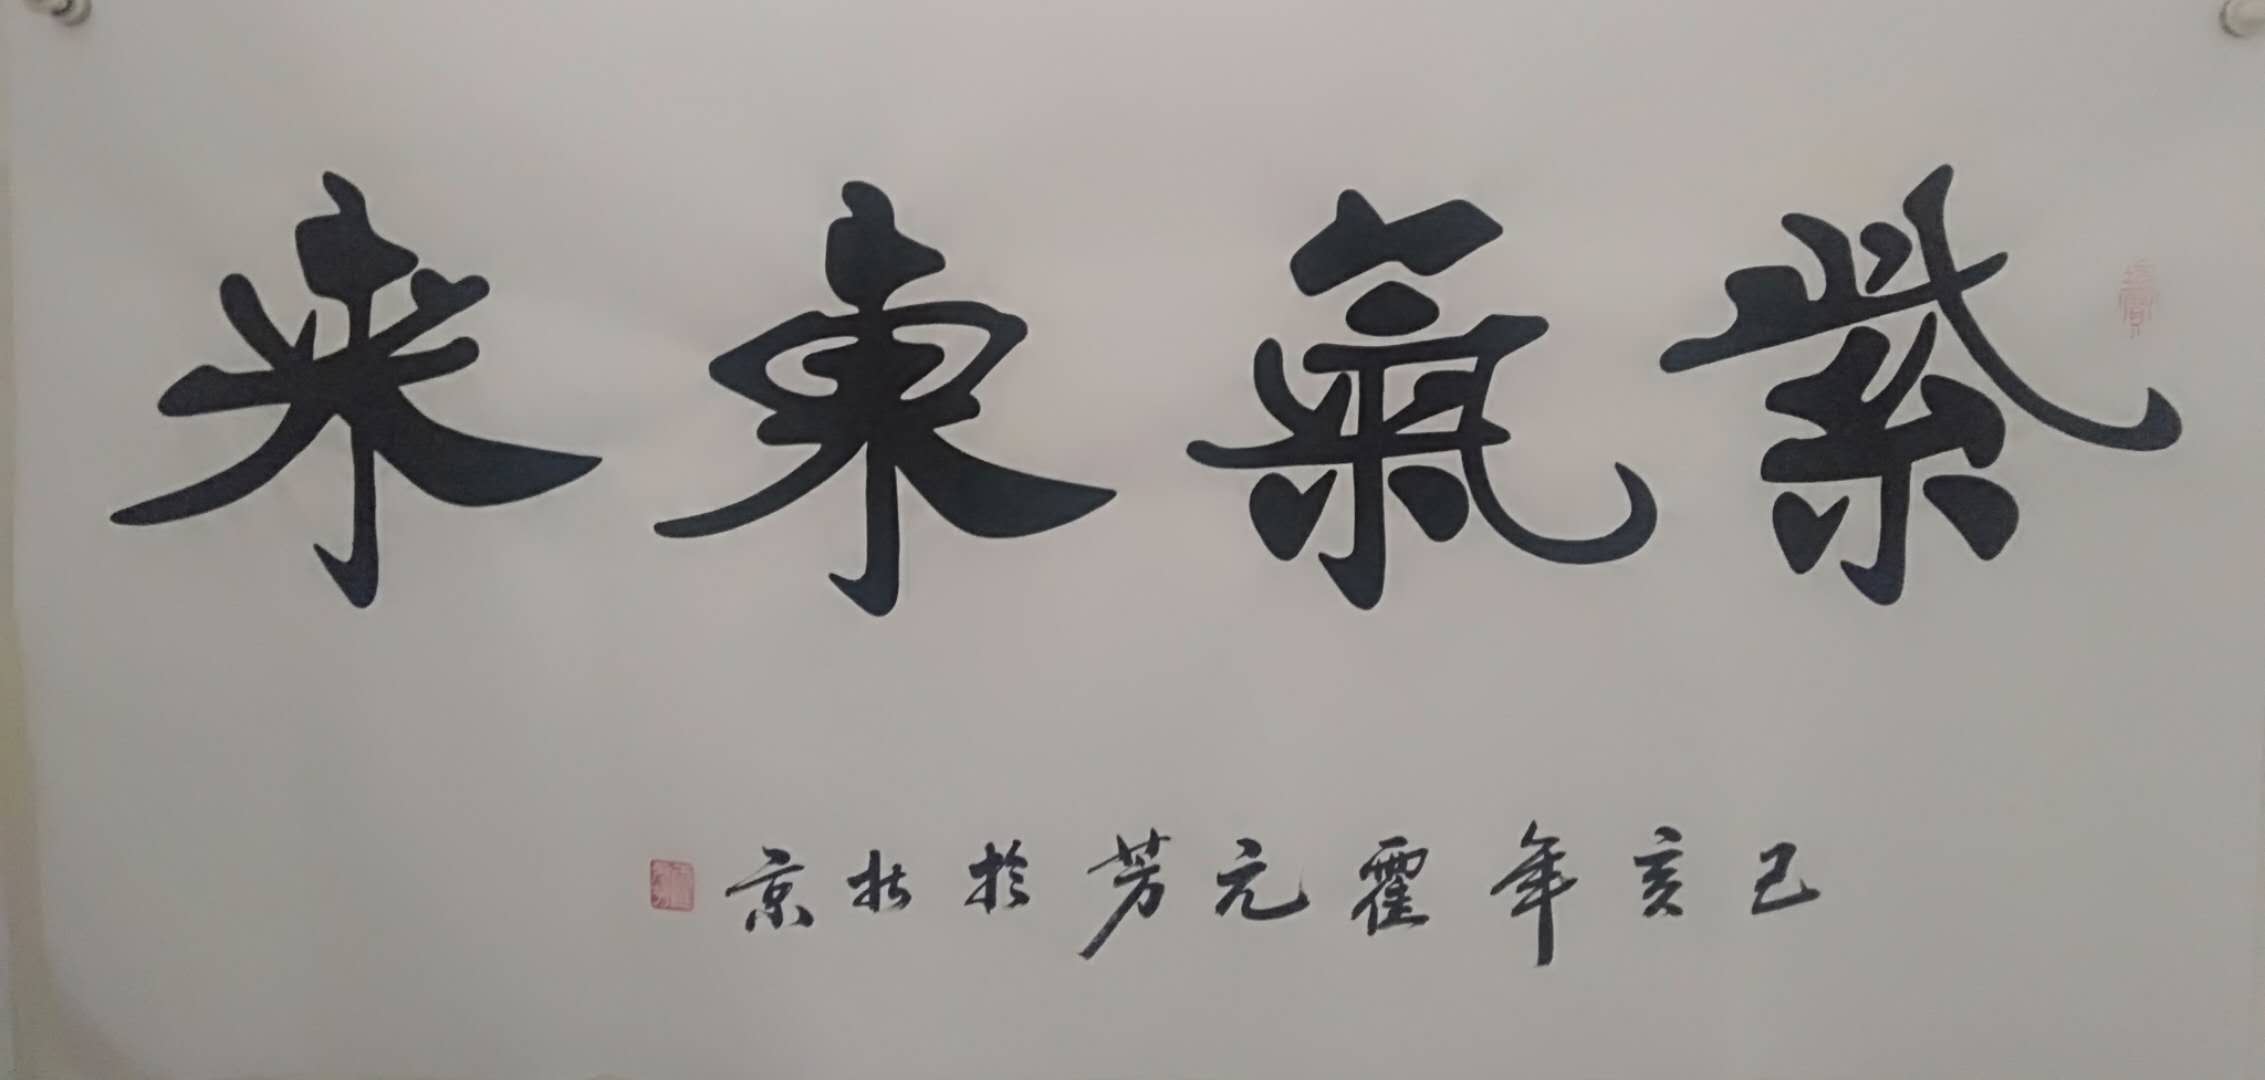 紫氣東来
己亥年霍元芳於北京